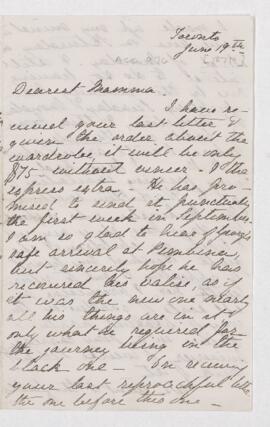 Toronto
June 19th
Dearest Mamma.
I have re-
ceived your last letter &
given the order about the
wardrobe, it will be only
$75 without veneer. & the
express extra. He has pro-
mised to send it punctually
the first week in September.
I am so glad to hear of
safe arrival at Pembina,
but sincerely hope he has
recovered his valise, as if
it was the new one nearly
all his things are in it &
only what he required for
the journey being in the
black one — On receiving
your last reproachful
the one before this one —